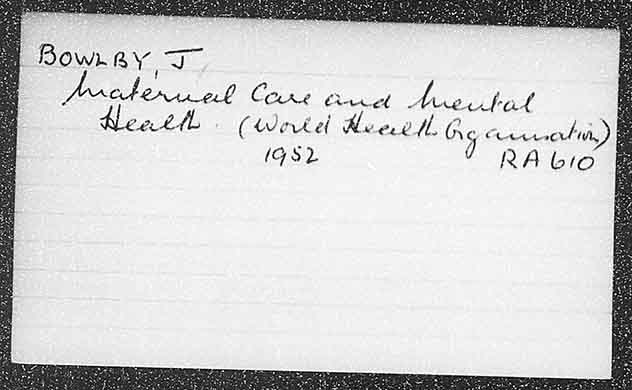 BOWLBY, J
Maternal Care and Mental
Health. (World Health Organisation)
1952 RA 610